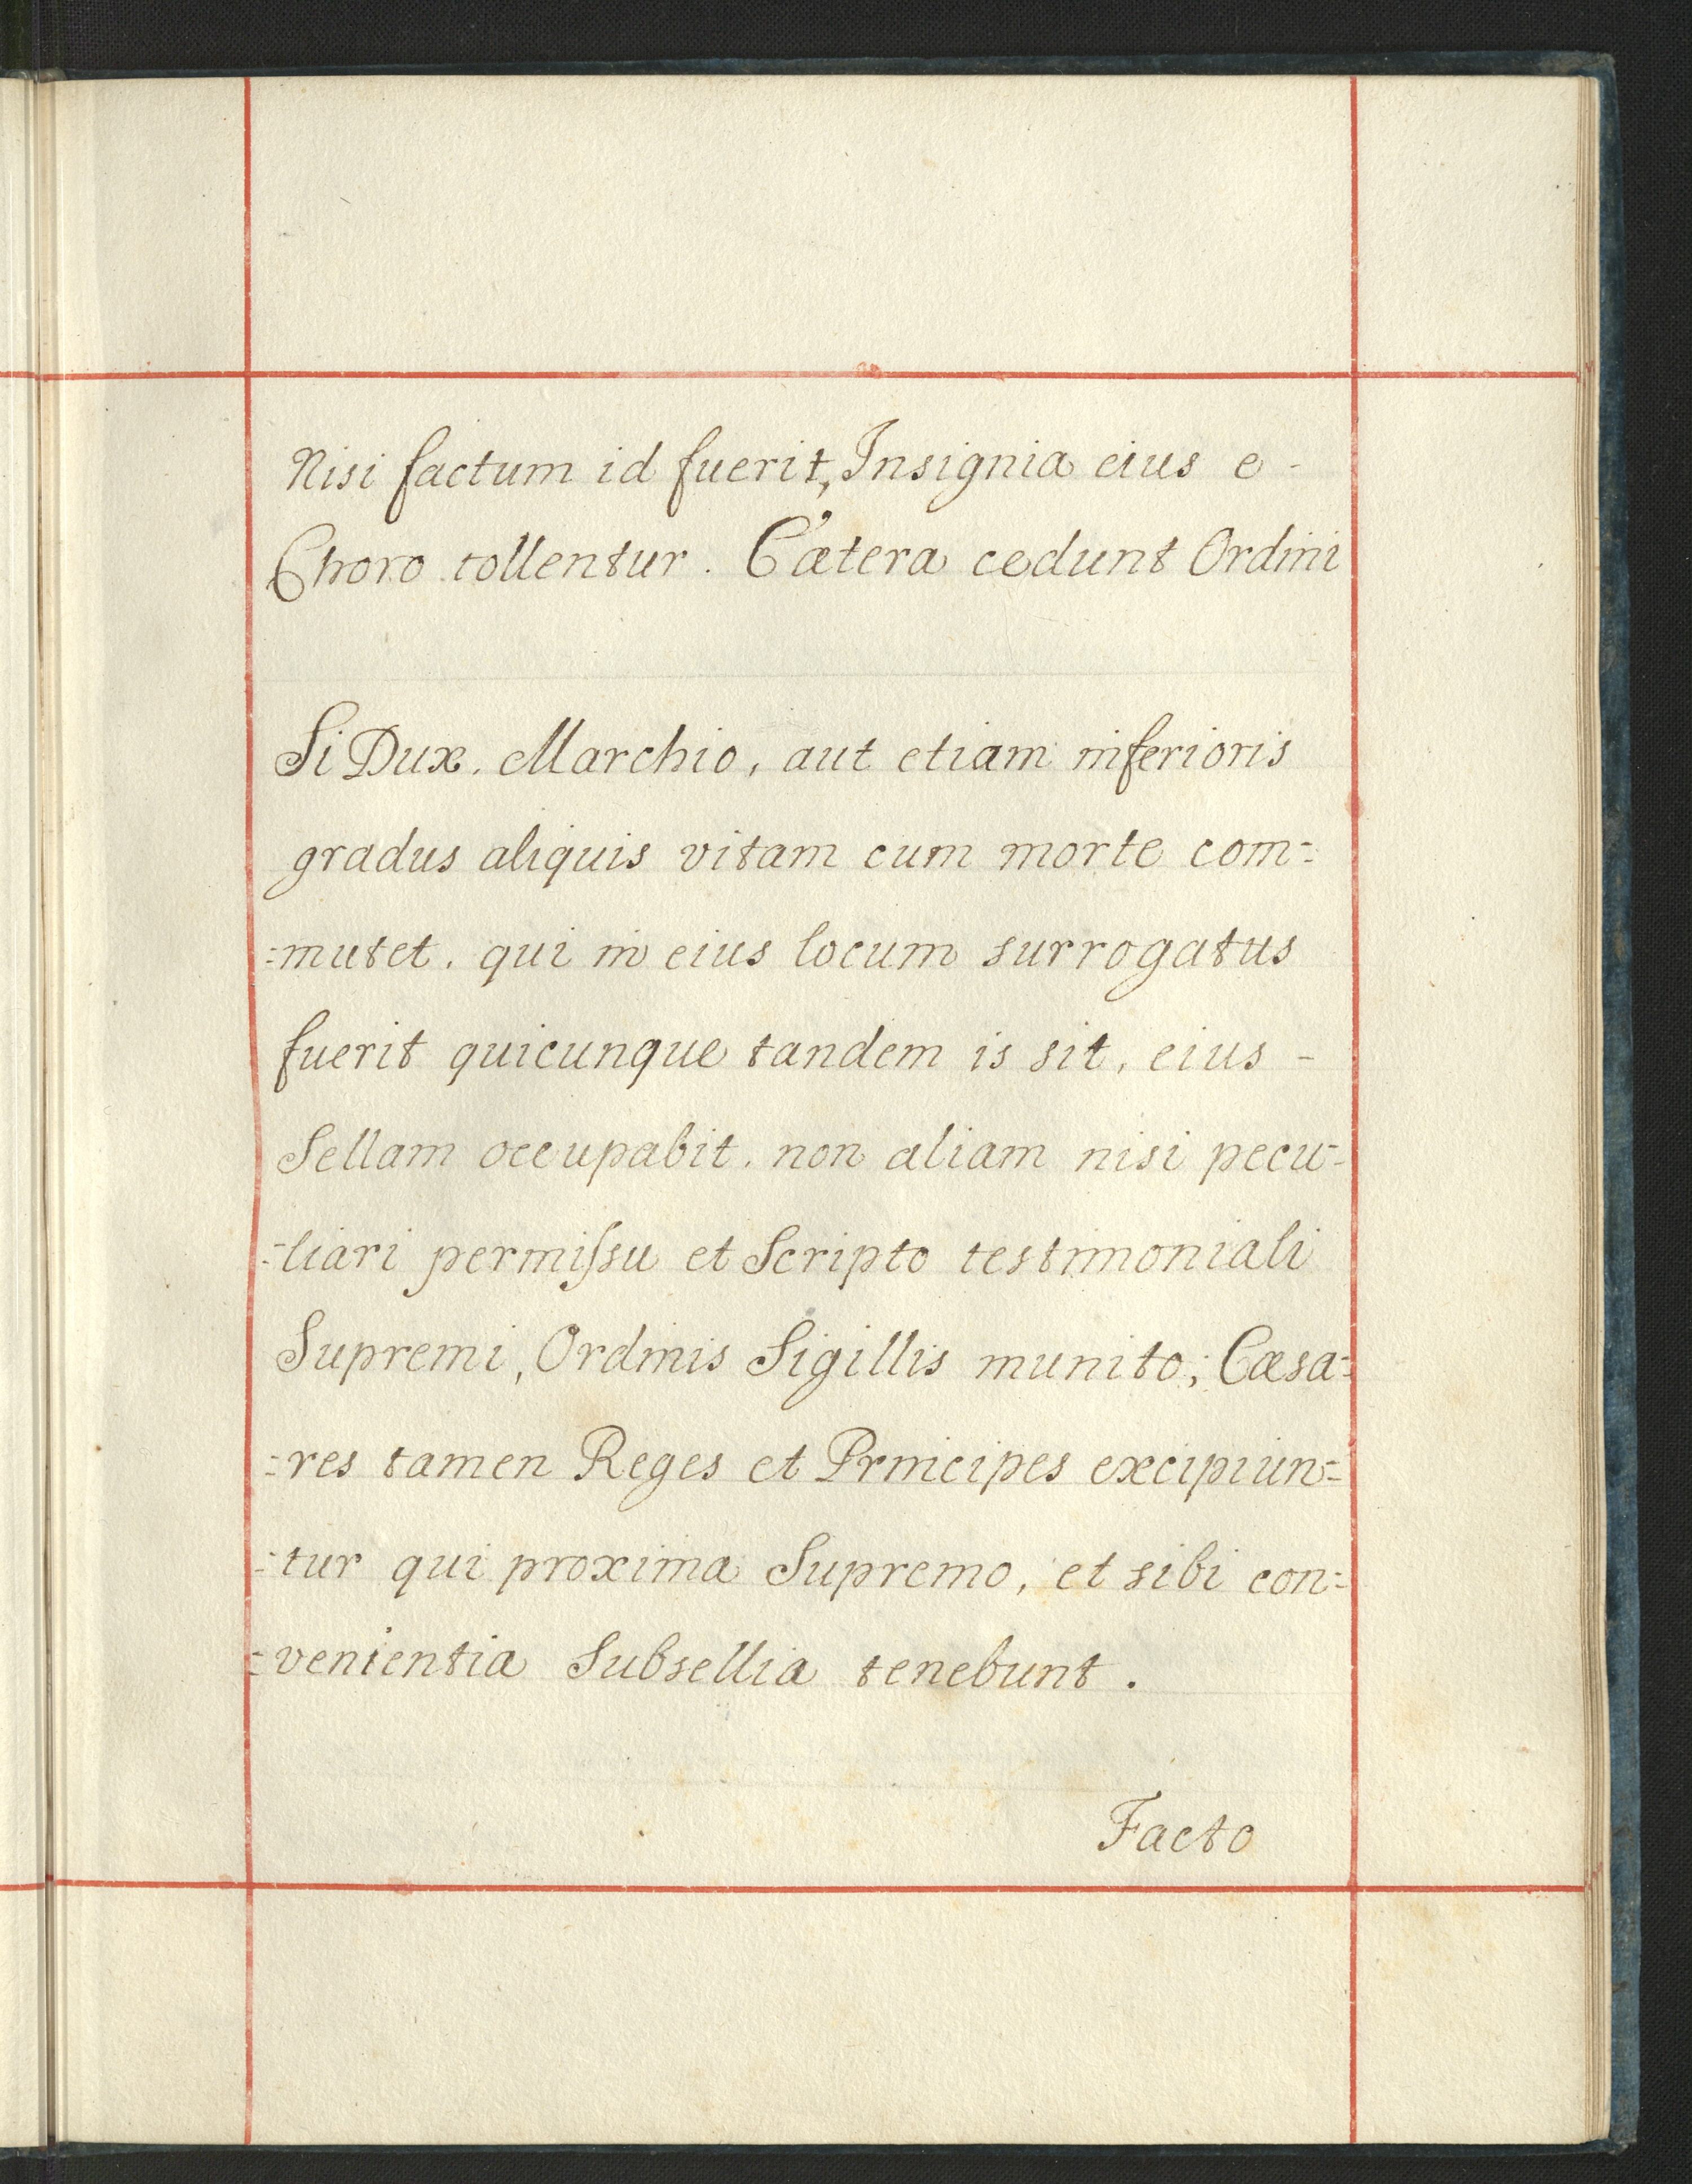 Nisi factum id fuerit, Insignia eius e -
Choro tollentur. Cætera cedunt Ordini
Si Dux. Marchio, aut etiam inferioris
gradus aliquis vitam cum morte com=
=mutet. qui in eius locum surrogatus
fuerit quicunque tandem is sit, eius -
Sellam occupabit. non aliam nisi pecu=
=liari permiſsu et Scripto testimoniali
Supremi, Ordinis Sigillis munito; Cæsa=
=res tamen Reges et Principes excipiun=
=tur qui proxima Supremo, et sibi con=
=venientia Subsellia tenebunt.
Facto